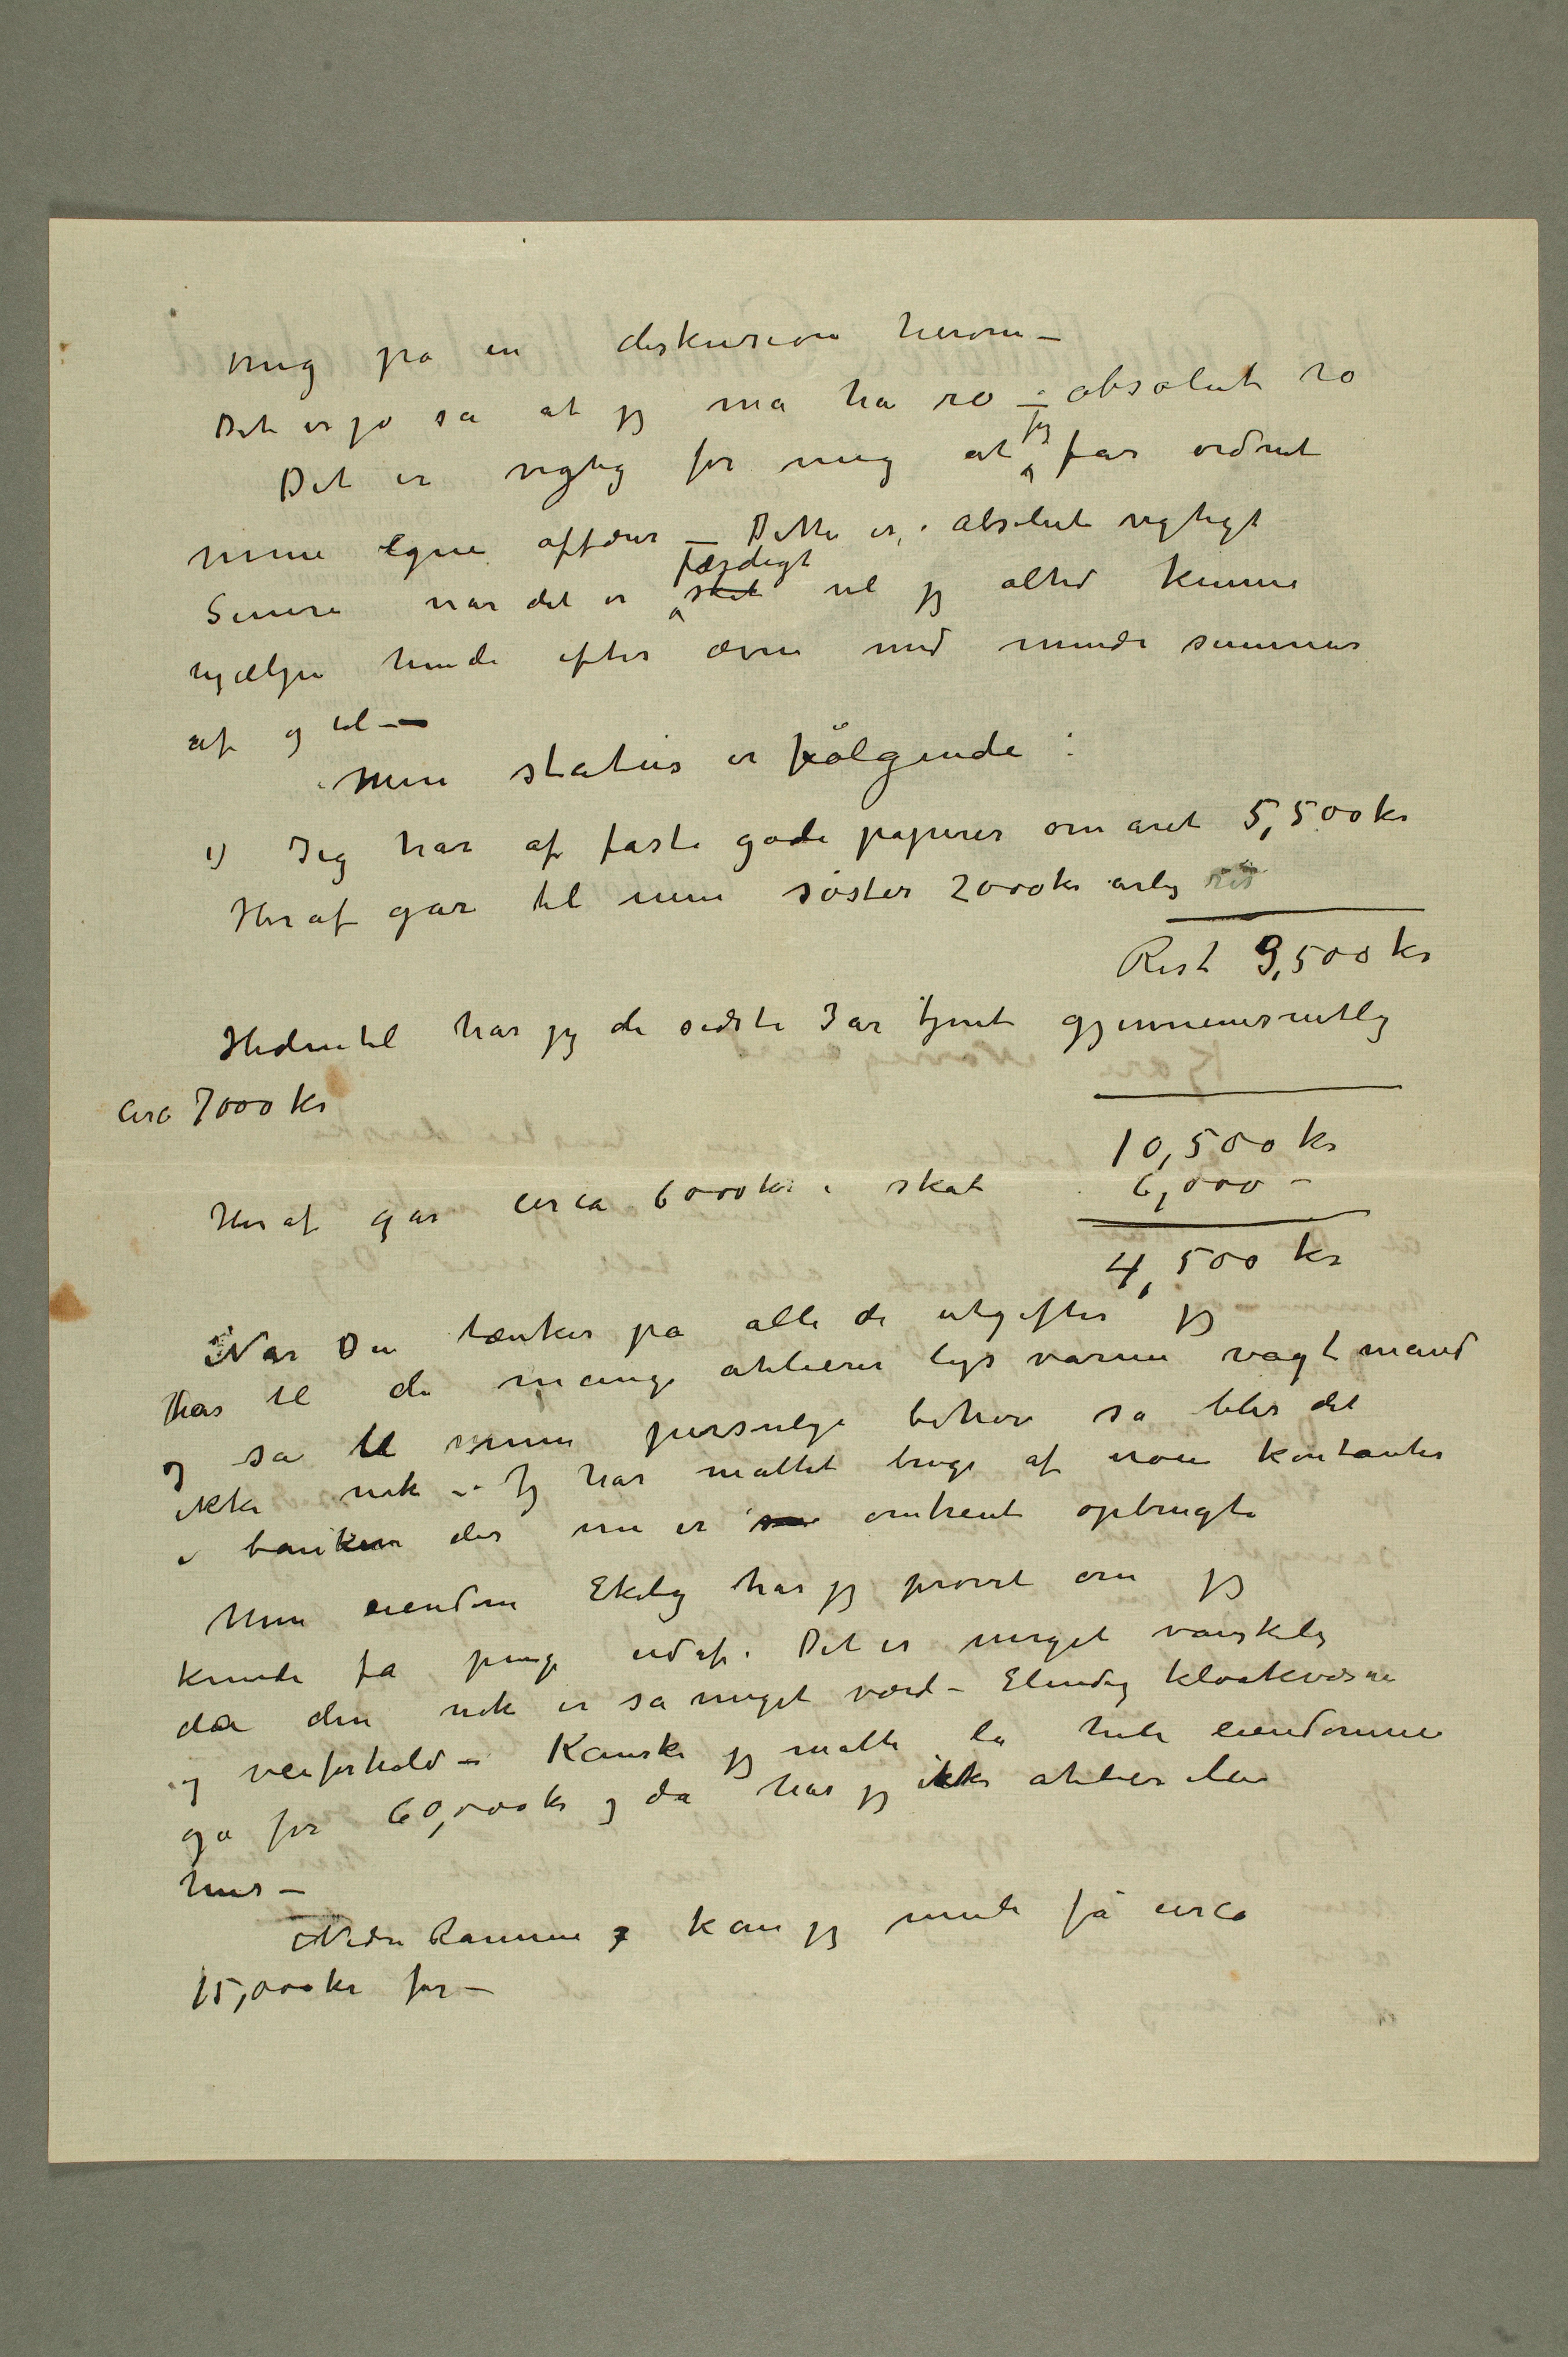 mig på en diskusion herom –
Det er jo så at jeg må ha ro – absolut ro
Det er vigtig for mig at jeg får ordnet
mine egne affærer – Dette er absolut vigtigt
Senere når det er sket færdigt vil jeg altid kunne
hjælpe hende efter ævne med mindre summer
af og til –
Min status er følgende :
1) Jeg har af faste gode papirer om året 5,500 kr
Heraf går til min søster 2000 kr årlig
Rest 3,500 kr
Hidentil har jeg de sidste 3 år tjent gjennemsnitlig
circa 7000 kr
10,500 kr
Heraf går circa 6000 kr i skat 6,000 –
4,500 kr
Når Du tænker på alle de utgifter jeg
har til de mange atelierer lys varme vagtmand
og så til mine personlige behov så blir det
ikke nok – Jeg har måttet bruge af noen kontanter
i banken der nu er omtrent opbrugte
Min eiendom Ekely har jeg prøvet om jeg
kunde få penge ud af. Det er meget vanskelig
da den nok er så meget værd – Elendig kloakvæsen
og veiforhold – Kanske jeg måtte la hele eiendommen
gå for 60,000 kr og da har jeg ikke atelier eller
hus –
Nedre Ramme kan jeg muli få circa
15,000 kr for –